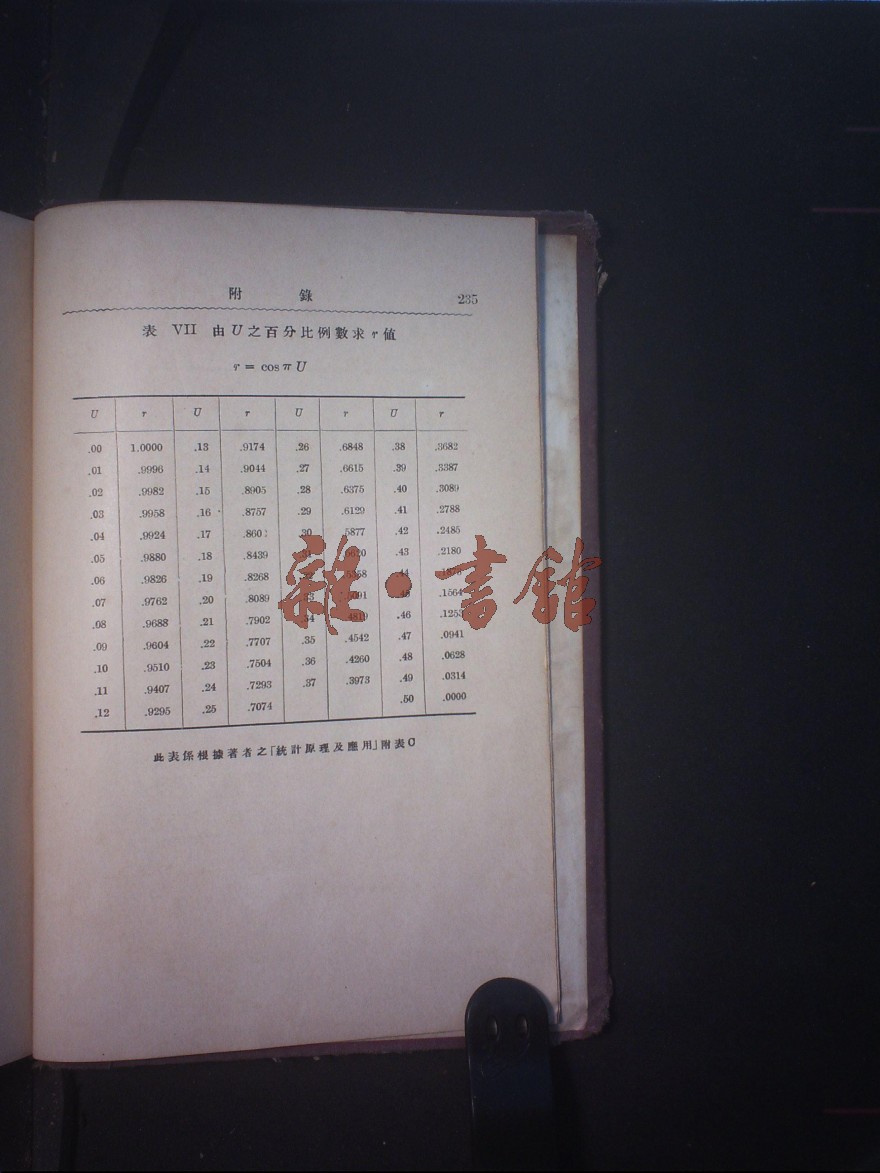 附 錄 235
表 VII 由 U 之百分比例數求 r 值
r = cos π U
U r U r U r U r
.00 1.0000 .13 .9174 .26 .6848 .38 .3682
.01 .9996 .14 .9044 .27 .6615 .39 .3387
.02 .9982 .15 .8905 .28 .6375 .40 .3089
.03 .9958 .16 .8757 .29 .6129 .41 .2788
.04 .9924 .17 .860 .30 .5877 .42 .2485
.05 .9880 .18 .8439 .43 .2180
.06 .9826 .19 .8268 .44
.07 .9762 .20 .8089 .1564
.08 .9688 .21 .7902 .34 .4819 .46 .1253
.09 .9604 .22 .7707 .35 .4542 .47 .0941
.10 .9510 .23 .7504 .36 .4260 .48 .0628
.11 .9407 .24 .7293 .37 .3973 .49 .0314
.12 .9295 .25 .7074 .50 .0000
此表係根據著者之「統計原理及應用」附表C
雜·書館